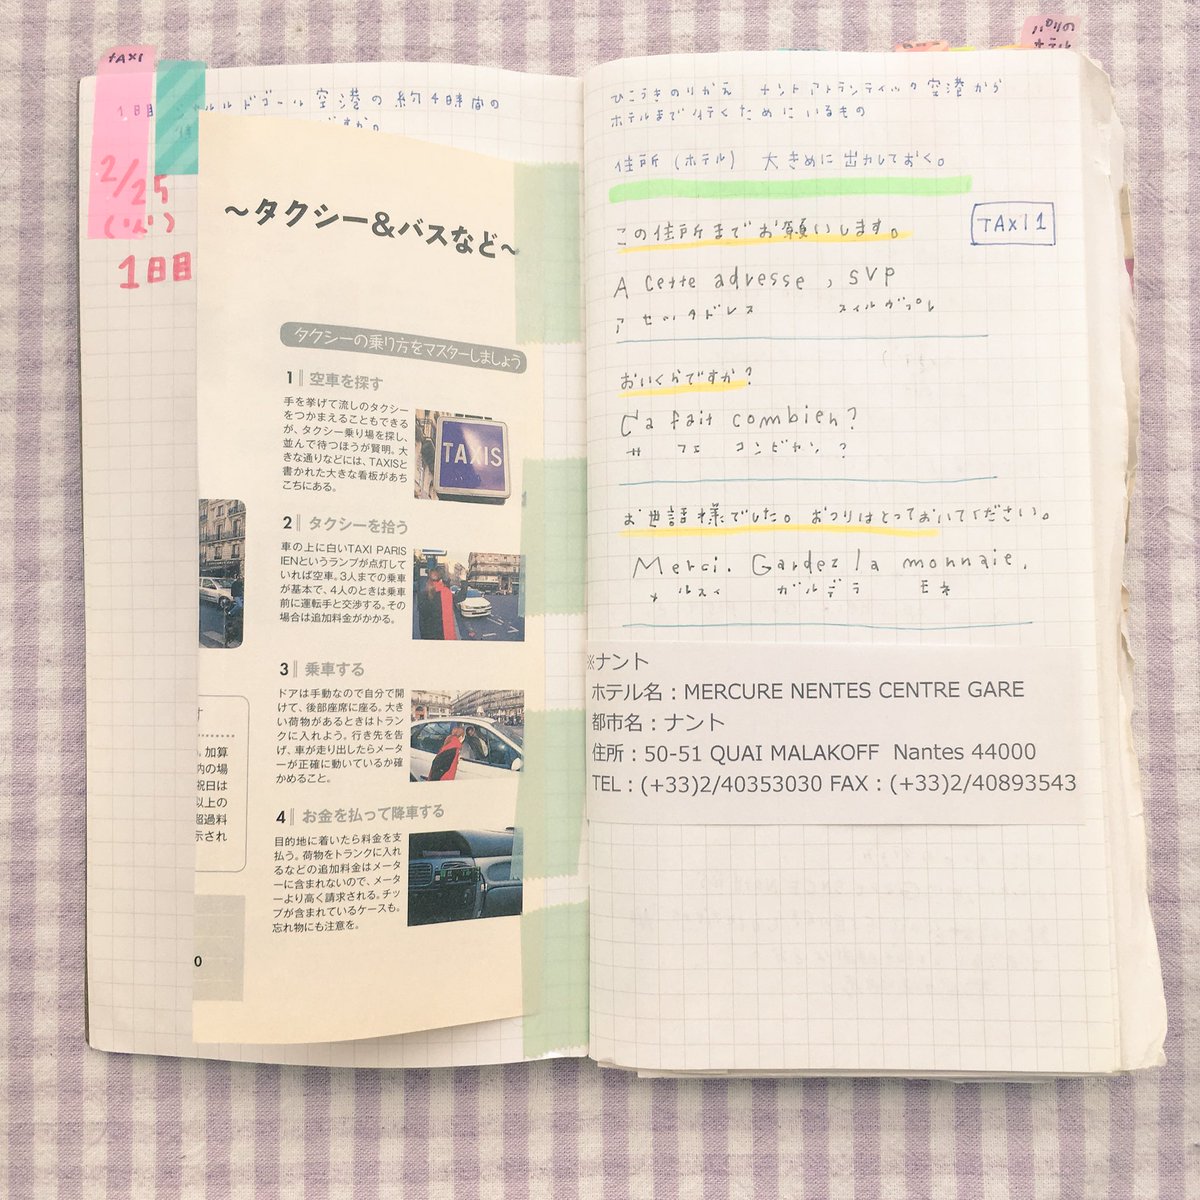 TAXI
1日目 シャルルドゴール空港の約4時間の
2/25
(火)
1日目
~タクシー&バスなど~
タクシーの乗り方をマスターしましょう
1 空車を探す
手を挙げて流しのタクシー
をつかまえることもできる
が、タクシー乗り場を探し、
並んで待つほうが賢明。大
きな通りなどには、TAXISと
書かれた大きな看板があち
こちにある。
TAXIS
2 タクシーを拾う
車の上に白いTAXI PARIS
IENというランプが点灯して
いれば空車。3人までの乗車
が基本で、4人のときは乗車
前に運転手と交渉する。その
場合は追加料金がかかる。
3 乗車する
ドアは手動なので自分で開
けて、後部座席に座る。大き
い荷物があるときはトラン
クに入れよう。行き先を告
げ、車が走り出したらメータ
ーが正確に動いているか確
かめること。
4 お金を払って降車する
目的地に着いたら料金を支
払う。荷物をトランクに入れ
るなどの追加料金はメータ
ーに含まれないので、メータ
ーより高く請求される。チッ
プが含まれているケースも。
忘れ物にも注意を。
。加算
内の場
祝日は
以上の
超過料
示され
0
パリの
ホテル
ひこうきのりかえ ナントアトランティック空港から
ホテルまで行くためにいるもの
住所(ホテル) 大きめに出力しておく。
この住所までお願いします。
TAXI 1
A cette adresse , SVP
ア セッタドレス スィルヴプレ
おいくらですか?
Ça fait combien?
サ フェ コンビヤン?
お世話様でした。おつりはとっておいてください。
Merci. Gardez la monnaie.
メルスィ ガルデラ モネ
※ナント
ホテル名:MERCURE NENTES CENTRE GARE
都市名:ナント
住所:50-51 QUAI MALAKOFF Nantes 44000
TEL:(+33)2/40353030 FAX:(+33)2/40893543